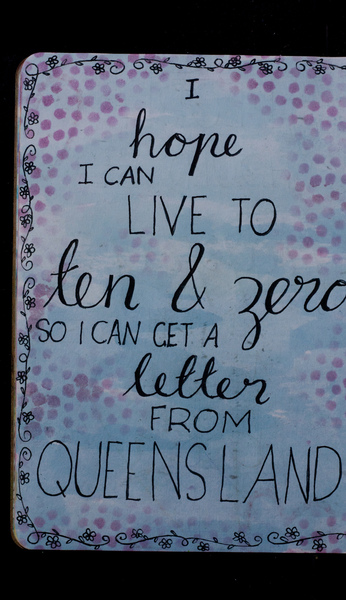 I
hope
I CAN
LIVE TO
ten & zero
SO I CAN GET A
letter
FROM
QUEENSLAND